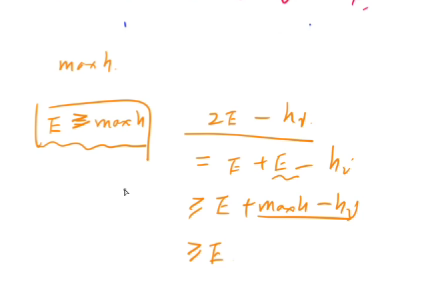 max h.
E ≥ max h
2E - hᵢ
= E + E - hᵢ
≥ E + max h - hᵢ
≥ E